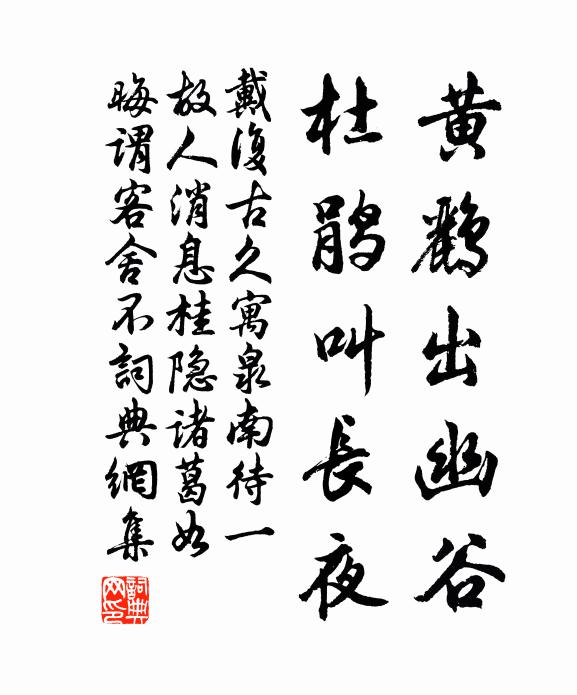 黄鸝出幽谷
杜鹃叫長夜
戴復古久寓泉南待一
故人消息桂隐诸葛如
晦谓客舍不詞典網集
詞典网印